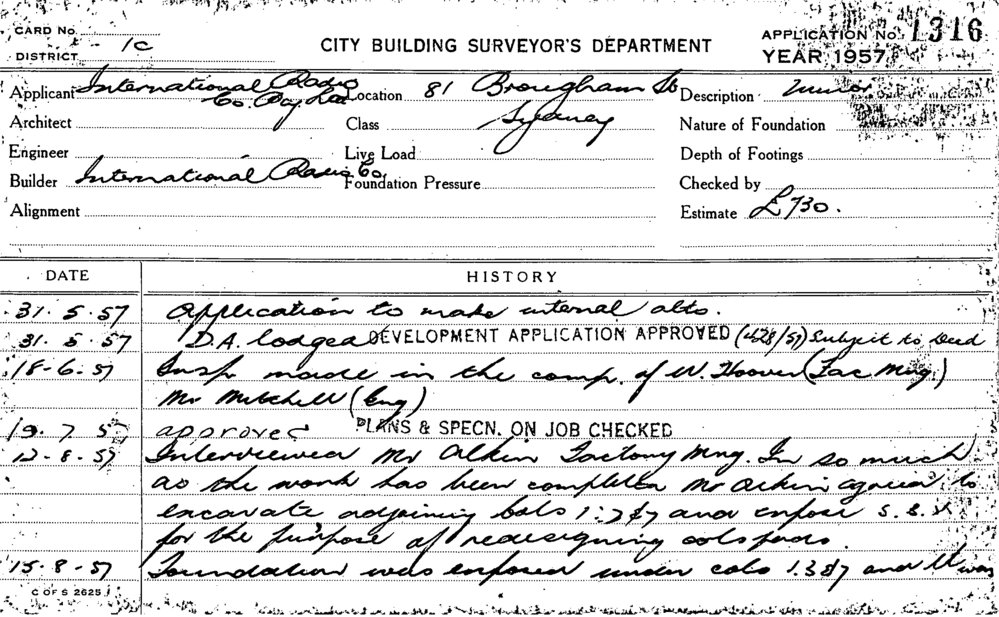 CARD No.
DISTRICT 1c
CITY BUILDING SURVEYOR'S DEPARTMENT
APPLICATION No. 1316
YEAR 1957
Applicant International Radio Co. Pty Ltd
Location 81 Brougham St Sydney
Description Minor
Architect
Class
Nature of Foundation
Engineer
Live Load
Depth of Footings
Builder International Radio Co.
Foundation Pressure
Checked by
Alignment
Estimate £730.
DATE HISTORY
31.5.57 Application to make internal alts.
31.5.57 D.A. lodged DEVELOPMENT APPLICATION APPROVED (428/57) Subject to Deed
18-6.57 Insp made in the comp. of W. Hoover (Fac Mng.)
Mr Mitchell (Eng)
19.7.57 approved PLANS & SPECN. ON JOB CHECKED
12-8.57 Interviewed Mr Atkin Factory Mng. In so much
as the work has been completed Mr Atkin agreed to
excavate adjoining cols and expose
for the purpose of redesigning cols pads.
15-8-57 Foundation was exposed under cols 1.3&7 and it was
C OF S 2625